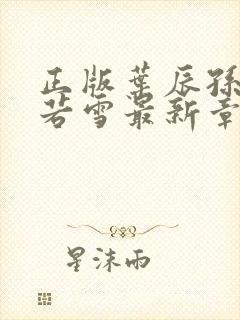 正版叶辰孙
若雪最新章
星沫雨